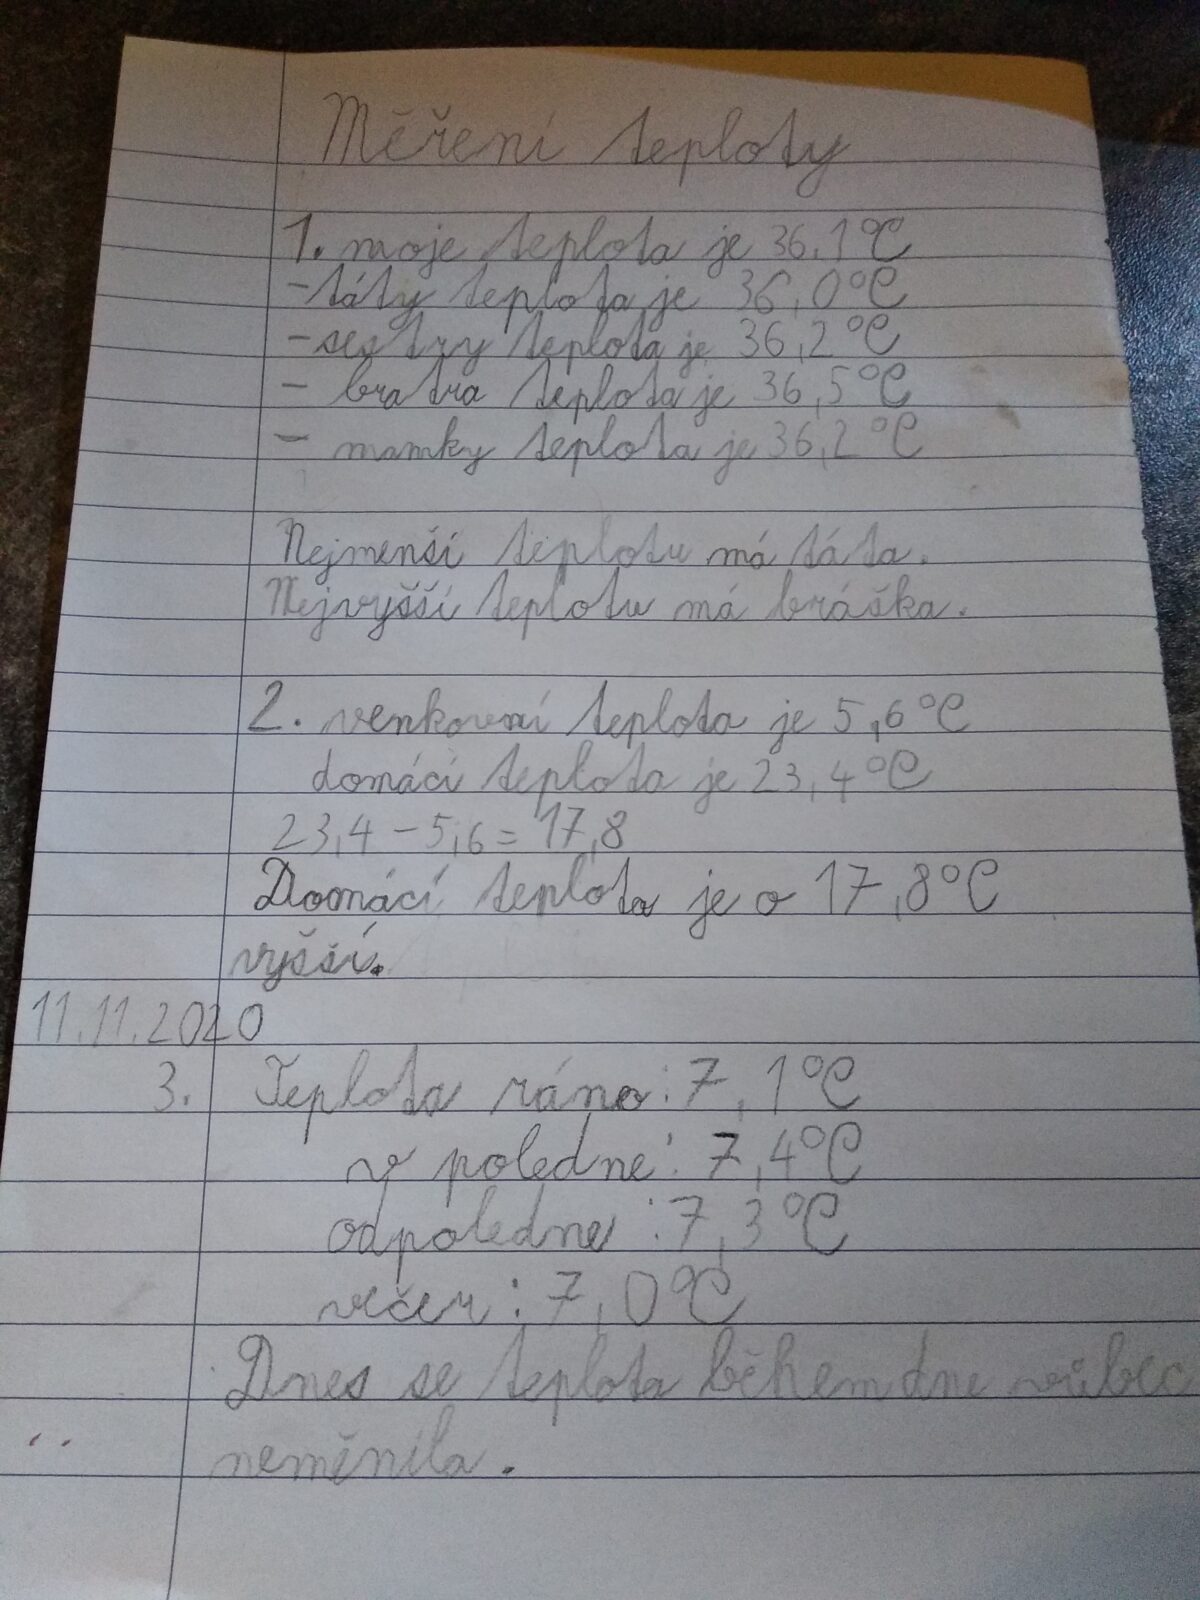 Měření teploty
1. moje teplota je 36,1°C
- táty teplota je 36,0°C
- sestry teplota je 36,2°C
- bratra teplota je 36,5°C
- mamky teplota je 36,2°C
Nejmenší teplotu má táta.
Nejvyšší teplotu má bráška.
2. venkovní teplota je 5,6°C
domácí teplota je 23,4°C
23,4 - 5,6 = 17,8
Domácí teplota je o 17,8°C
vyšší.
11.11.2020
3. Teplota ráno: 7,1°C
v poledne: 7,4°C
odpoledne: 7,3°C
večer: 7,0°C
Dnes se teplota během dne vůbec
neměnila.